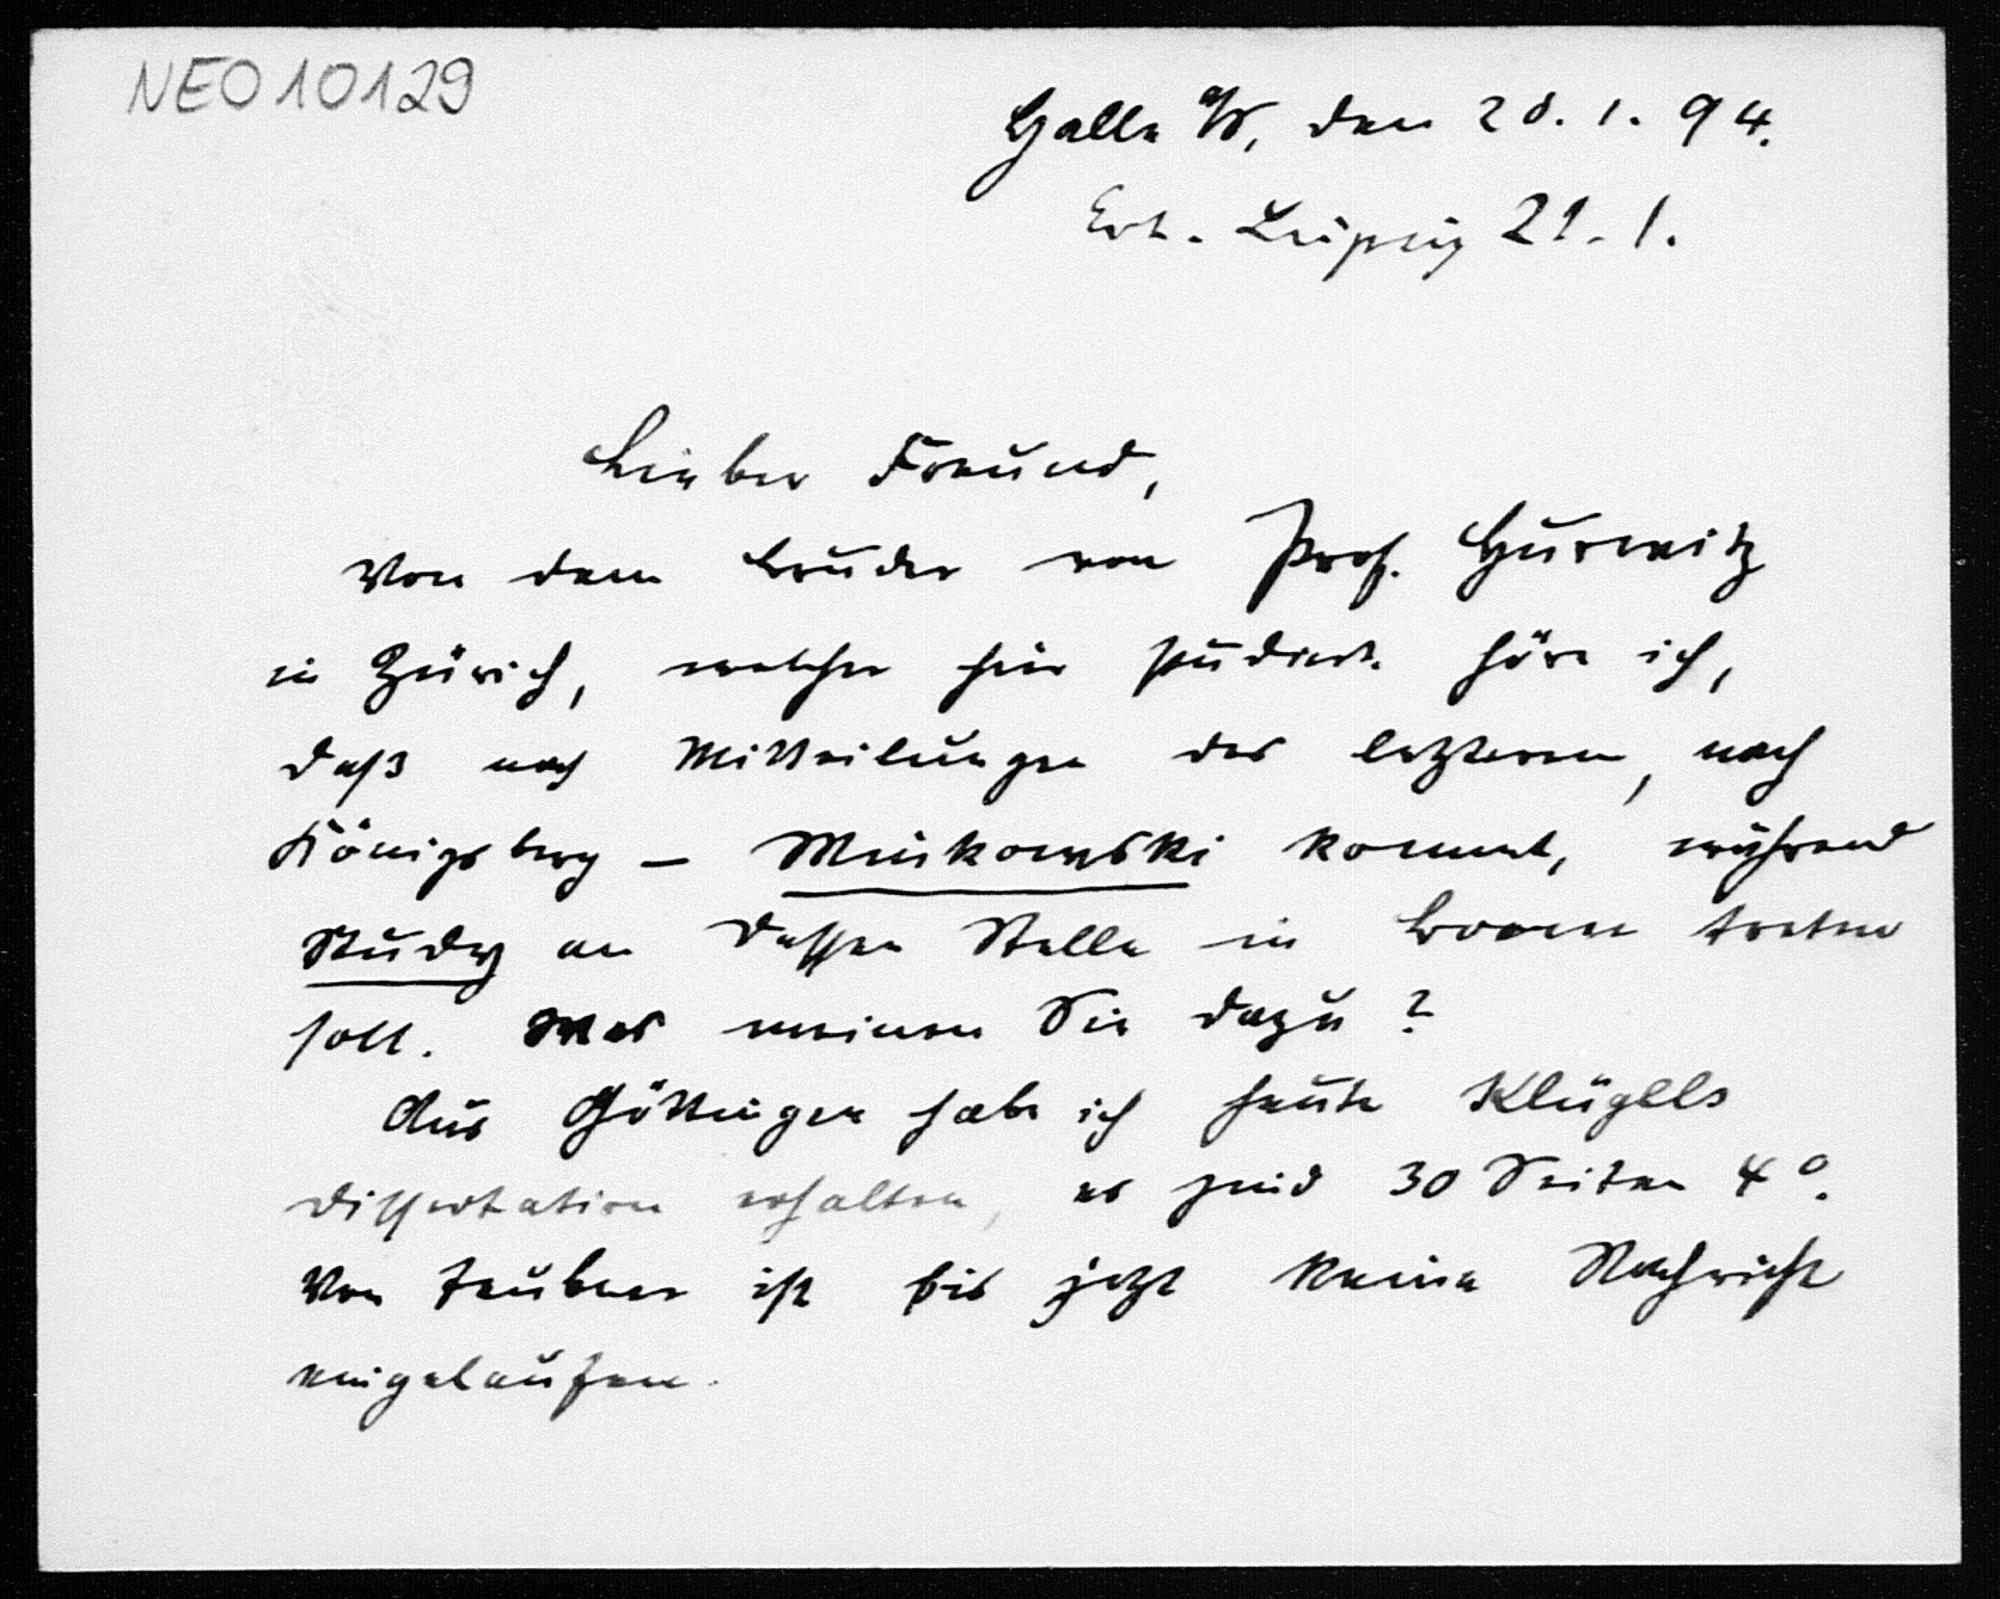 NEO 10129
Halle a/S, den 20. 1. 94.
Erh. Leipzig 21. 1.
Lieber Freund,
Von dem Bruder von Prof. Hurwitz
in Zürich, welcher hier studiert höre ich,
daß nach Mitteilungen des letzteren, nach
Königsberg – Minkowski kommt, während
Study an dessen Stelle in Bonn treten
soll. Was meinen Sie dazu?
Aus Göttingen habe ich heute Klügels
Dissertation erhalten, es sind 30 Seiten 4°.
Von Teubner ist bis jetzt keine Nachricht
eingelaufen.